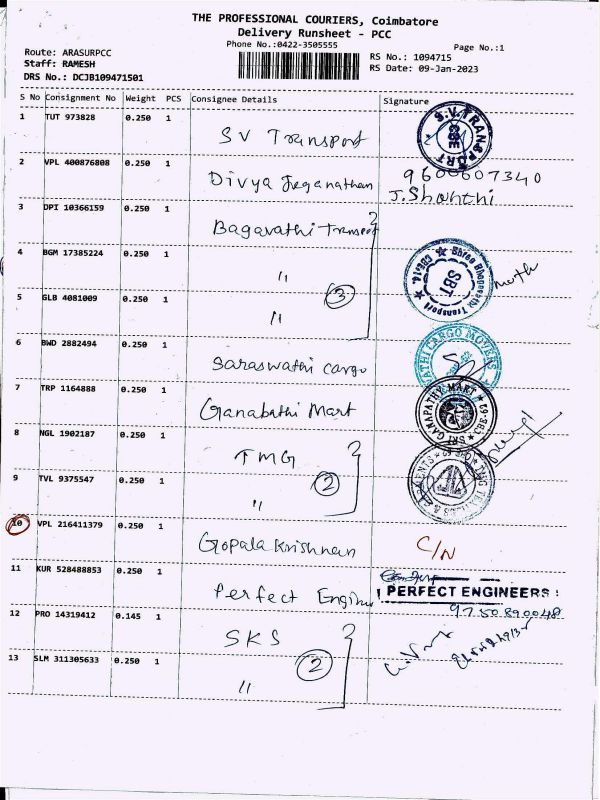 THE PROFESSIONAL COURIERS, Coimbatore
Delivery Runsheet - PCC
Phone No.:0422-3505555
Page No.:1
Route: ARASURPCC
Staff: RAMESH
DRS No.: DCJB109471501
RS No.: 1094715
RS Date: 09-Jan-2023
S No Consignment No Weight PCS Consignee Details Signature
1 TUT 973828 0.250 1 SV Transport S.V. TRANSPORT CBE
2 VPL 400876808 0.250 1 Divya Jeganathan 9600607340
J. Shanthi
3 DPI 10366159 0.250 1 Bagavathi Transport
4 BGM 17385224 0.250 1 " Shree Bhagavathi Transport SBT
5 GLB 4081009 0.250 1 " 3
6 BWD 2882494 0.250 1 Saraswathi Cargo WATHI CARGO MOVERS
7 TRP 1164888 0.250 1 Ganabathi Mart SRI GANAPATHY MART CBE-62
8 NGL 1902187 0.250 1 TMG
9 TVL 9375547 0.250 1 " 2
10 VPL 216411379 0.250 1 Gopala Krishnan C/N
11 KUR 528488853 0.250 1 Perfect Engine PERFECT ENGINEERS
9750890048
12 PRO 14319412 0.145 1 SKS
13 SLM 311305633 0.250 1 " 2